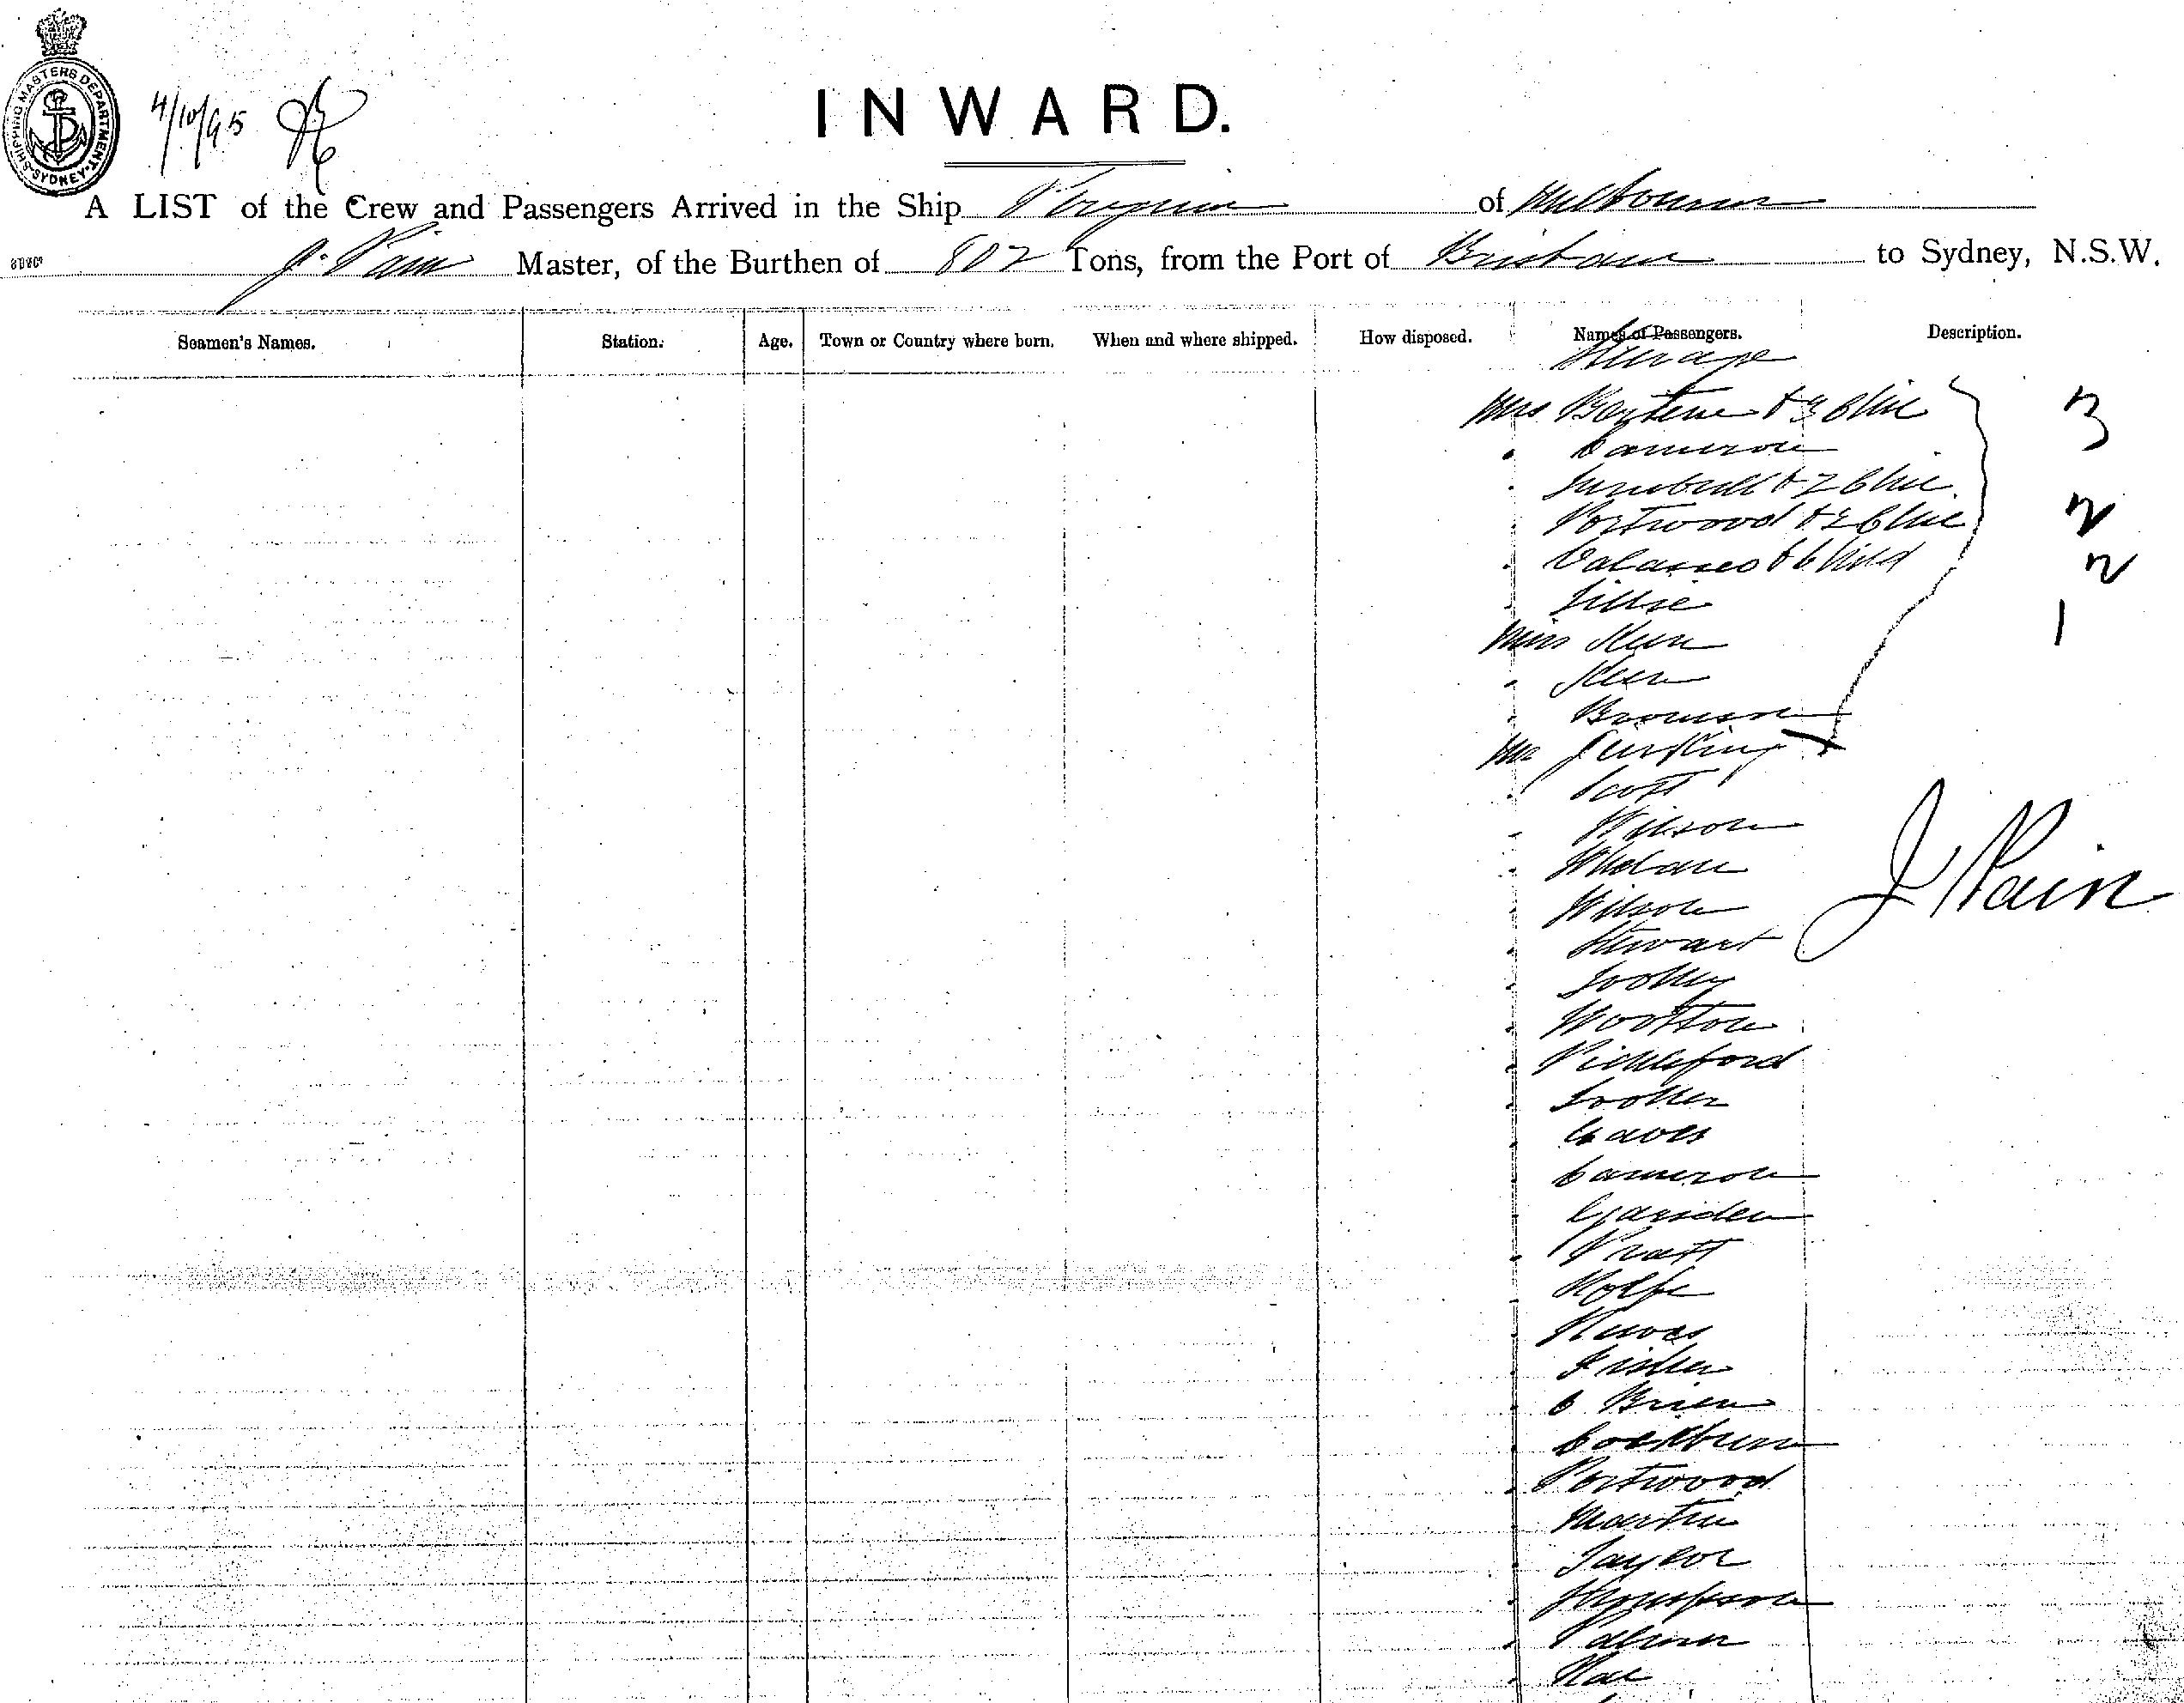 SHIPPING MASTERS DEPARTMENT. SYDNEY
4/10/95
INWARD.
A LIST of the Crew and Passengers Arrived in the Ship Peregrine of Melbourne
J. Pain Master, of the Burthen of 802 Tons, from the Port of Brisbane to Sydney, N.S.W.
Seamen's Names. Station. Age. Town or Country where born. When and where shipped. How disposed. Names of Passengers. Description.
Steerage
Mrs & 3 Chil 3
Cameron
Turnbull & 2 Chil 2
Portwood & 2 Chil 2
& Child 1
Lillie
Miss Keen
Keen
Mr
Scott
Wilson
Whelan
Wilson
J Pain
Stewart
Wootton
Pickleford
Eaves
Cameron
Garsden
Pratt
Rolfe
Fisher
O Brien
Cockburn
Portwood
Martin
Taylor
Thompson
Palmer
Rae